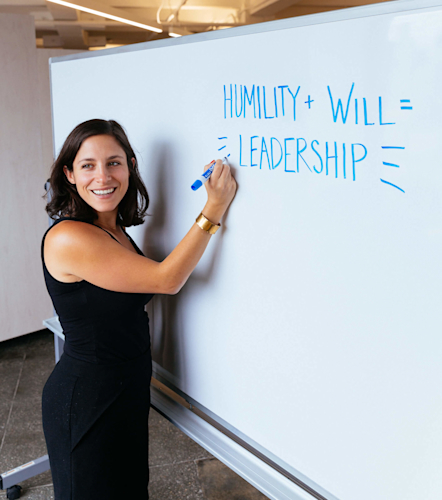 HUMILITY + WILL =
LEADERSHIP